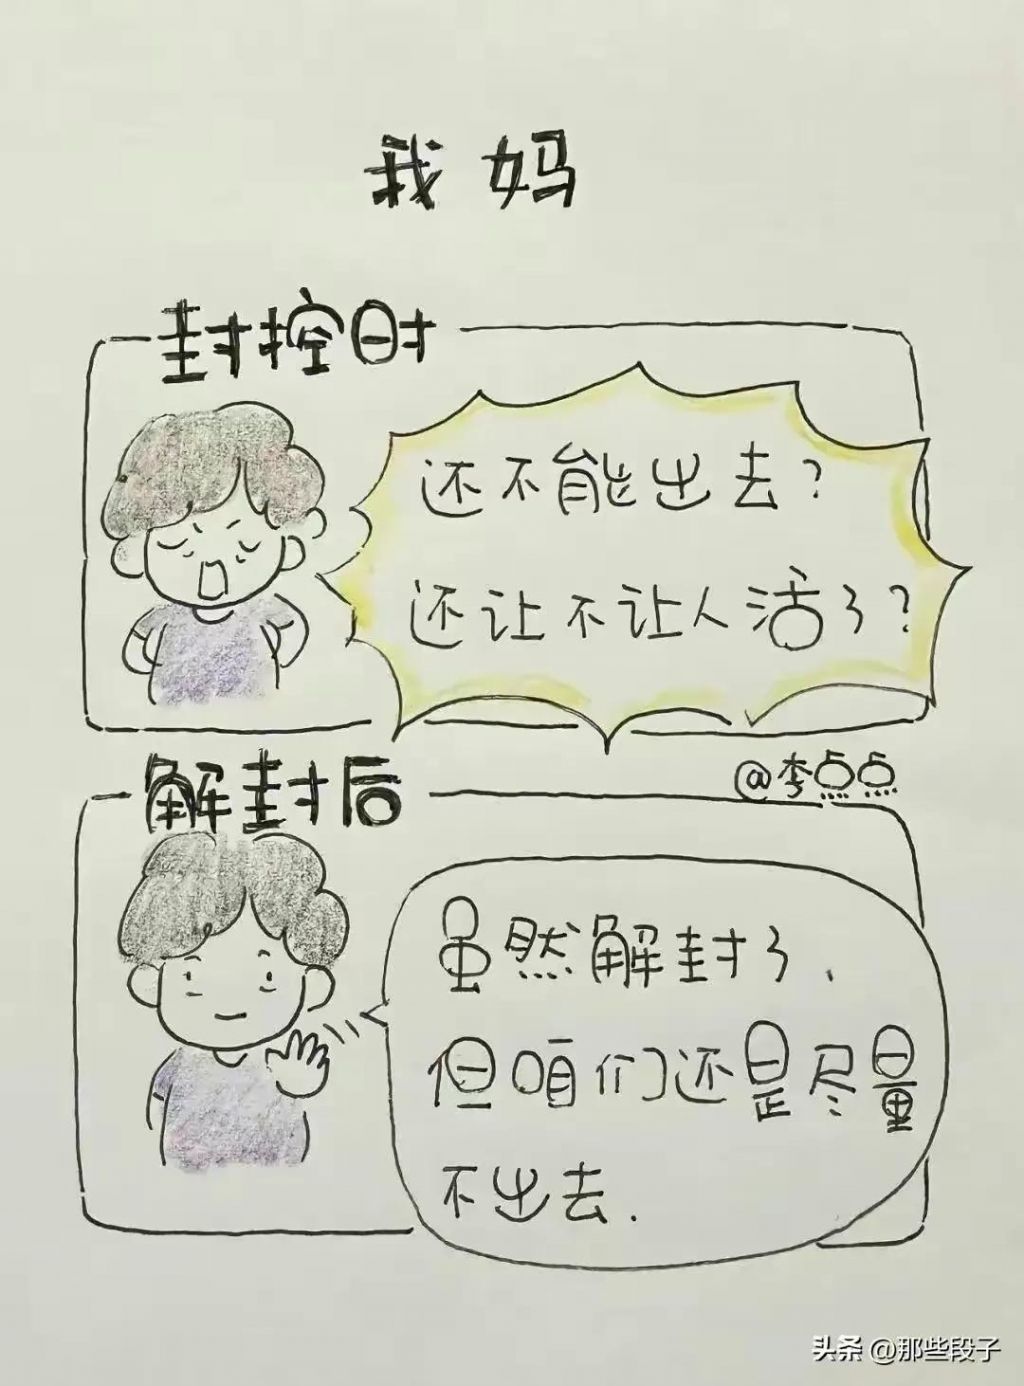 我妈
封控时
还不能出去?
还让不让人活了?
解封后
@李点点
虽然解封了、
但咱们还是尽量
不出去.
头条 @那些段子